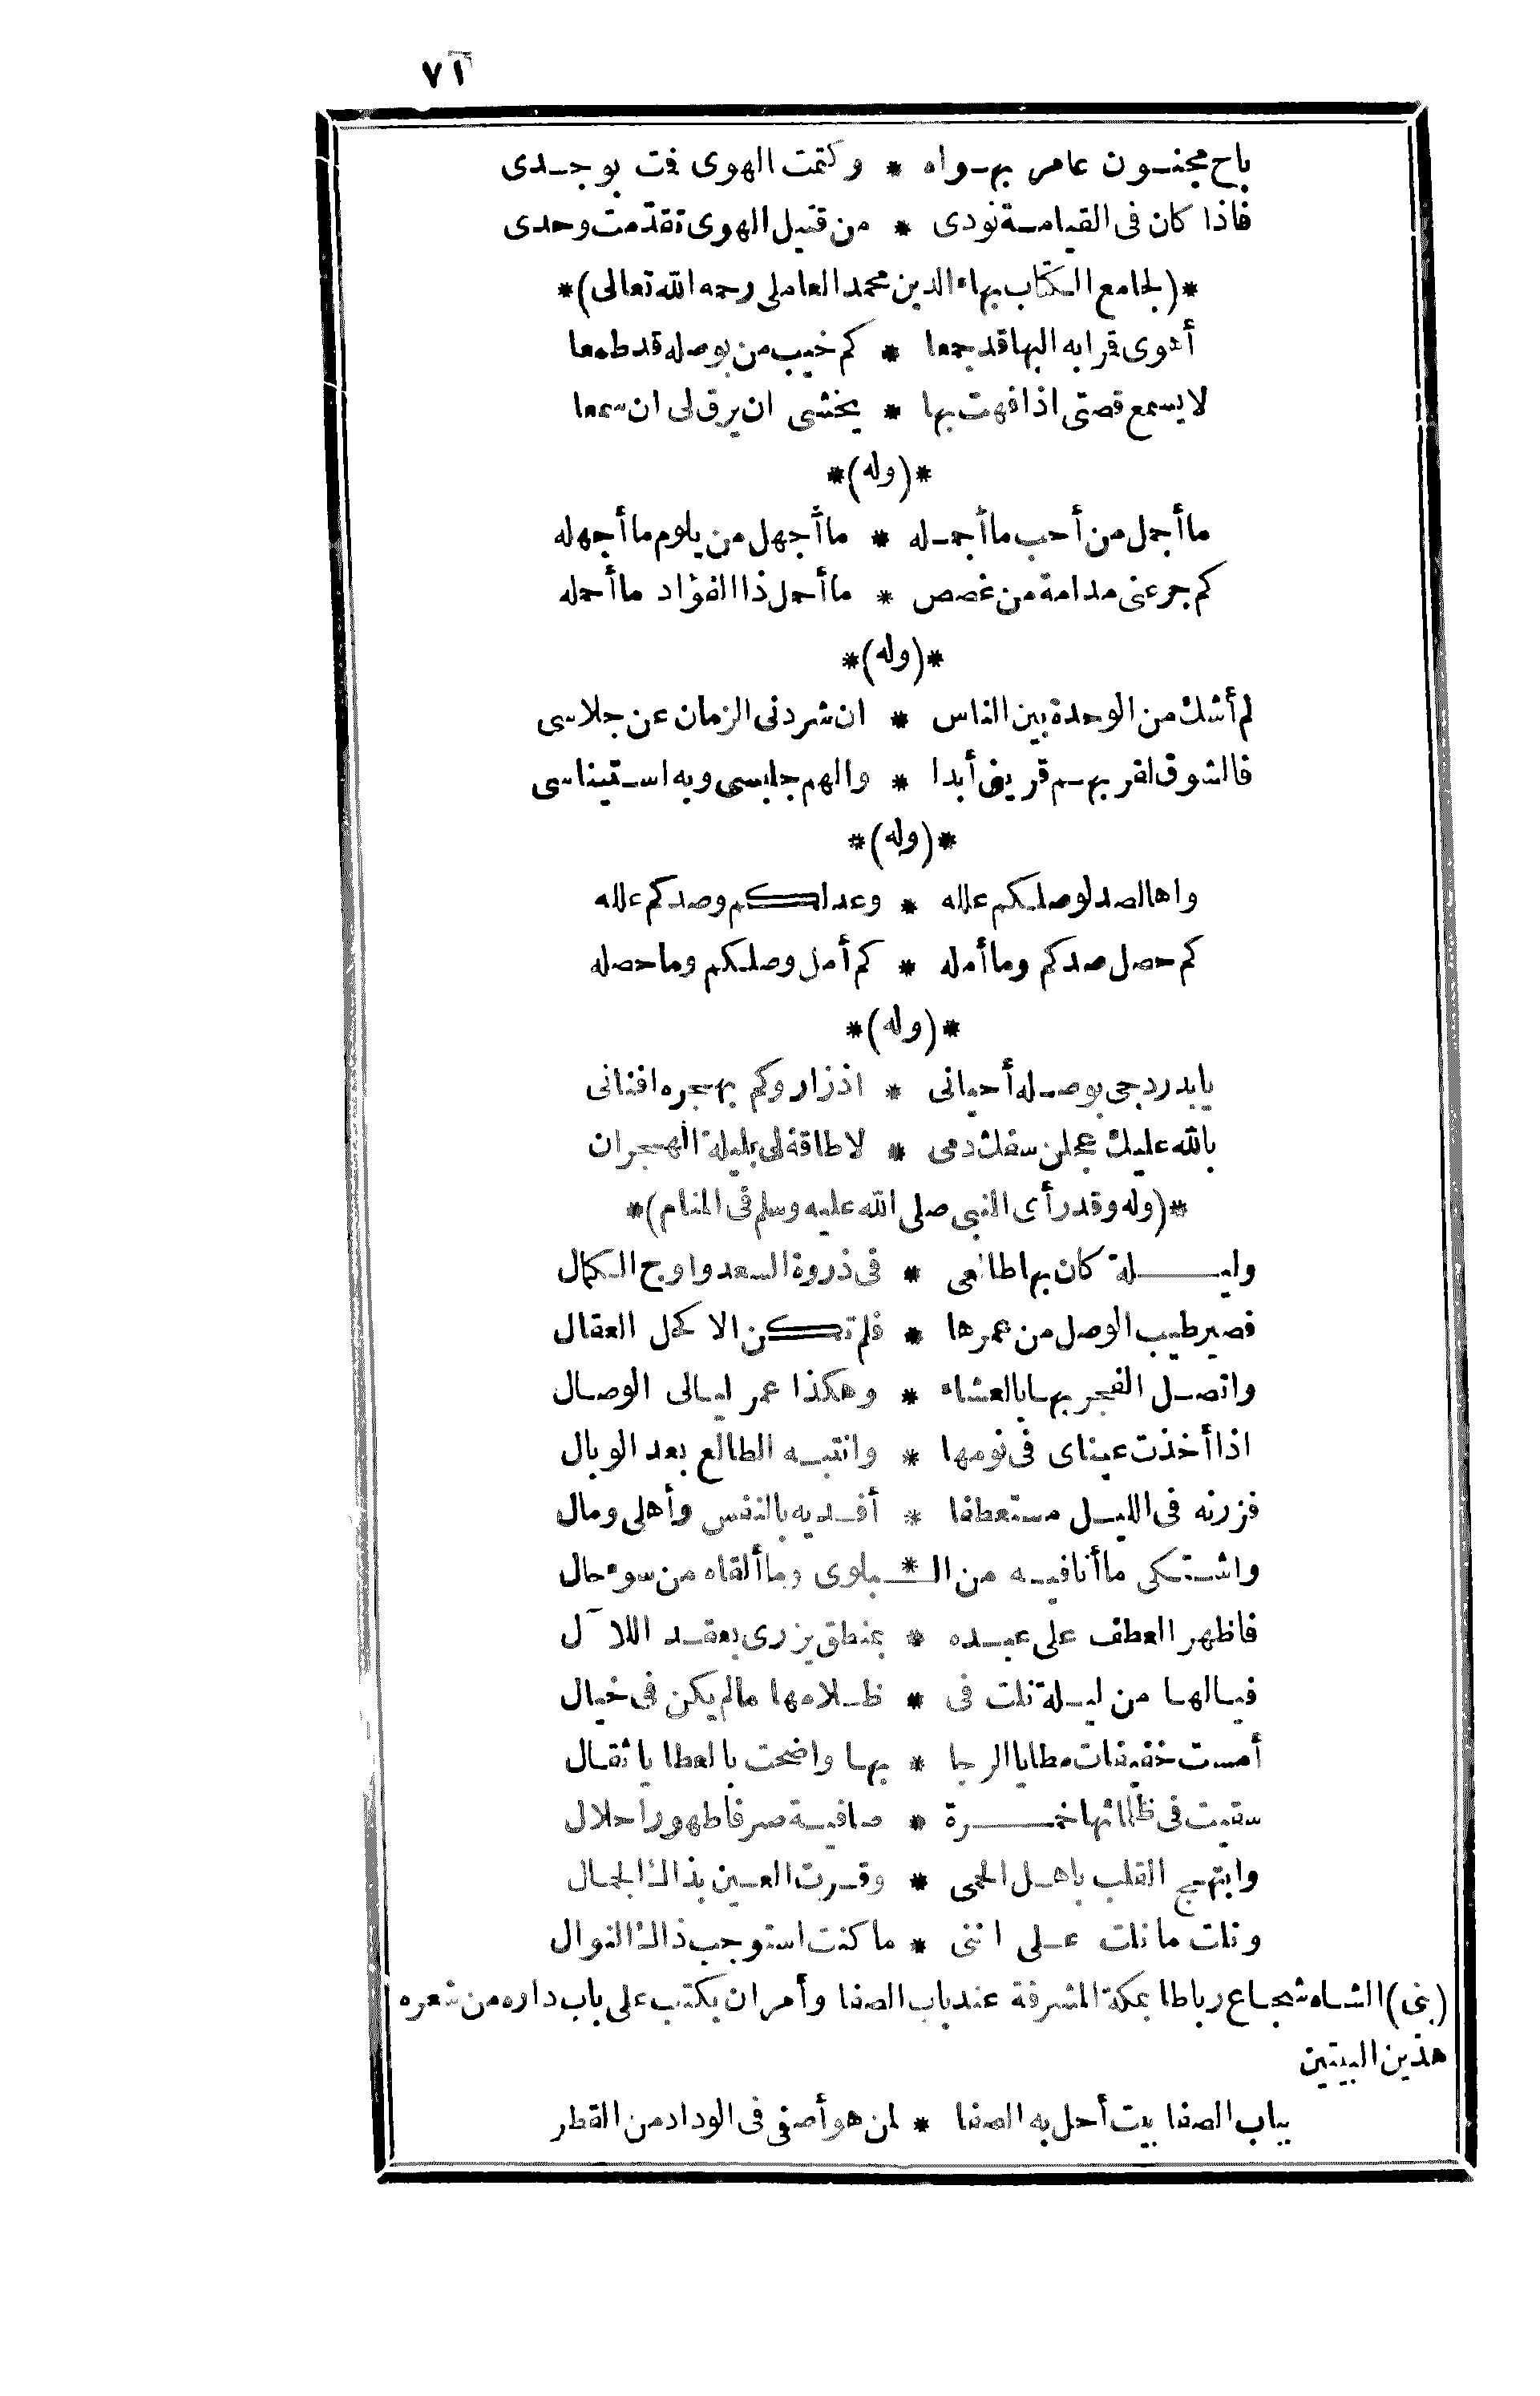 ٧١
باح مجنون عامر بهواه * وكتمت الهوى فمت بوجدى
فاذا كان فى القيامة نودى * من قتيل الهوى تقدمت وحدى
*(لجامع الكتاب بهاء الدين محمد العاملى رحمه الله تعالى)*
أهوى قمرا به البها قد جمعا * كم خيب من بوصله قد طمعا
لا يسمع قصتى اذا فهت بها * يخشى ان يرق لى ان سمعا
*(وله)*
ما أجمل من أحب ما أجمله * ما أجهل من يلوم ما أجهله
كم جرعنى مدامة من غصص * ما أحمل ذا الفؤاد ما أحمله
*(وله)*
لم أشك من الوحدة بين الناس * ان شردنى الزمان عن جلاسى
فالشوق لقربهم قرينى أبدا * والهم جليسى وبه استيناسى
*(وله)*
واها لصد لوصلكم علله * وعدا لكم وصدكم علله
كم حصل صدكم وما أمله * كم أمل وصلكم وما حصله
*(وله)*
يا بدر دجى بوصله أحيانى * اذ زار وكم بهجره افنانى
بالله عليك عجلن سفك دمى * لا طاقة لى بليلة الهجران
*(وله وقد رأى النبى صلى الله عليه وسلم فى المنام)*
وليلة كان بها طالعى * فى ذروة السعد واوج الكمال
قصر طيب الوصل من عمرها * فلم تكن الا كحل العقال
واتصل الفجر بها بالعشاء * وهكذا عمر ليالى الوصال
اذا أخذت عيناى فى نومها * وانتبه الطالع بعد الوبال
فزرته فى الليل مستعطفا * أفديه بالنفس وأهلى ومال
واشتكى ما أنا فيه من الـ * ـبلوى وما ألقاه من سوء حال
فاظهر العطف على عبده * بمنطق يزرى بعقد اللآل
فيالها من ليلة نلت فى * ظلامها مالم يكن فى خيال
أمست خفيفات مطايا الرجا * بها واضحت بالعطايا ثقال
سقيت فى ظلمائها خمرة * صافية صرفا طهورا حلال
وابتهج القلب باهل الحمى * وقرت العين بذاك الجمال
ونلت ما نلت على اننى * ما كنت استوجب ذاك النوال
(بنى) الشاه شجاع رباطا بمكة المشرفة عند باب الصفا وأمر ان يكتب على باب داره من شعره
هذين البيتين
بباب الصفا بيت أحل به الصفا * لمن هو أصفى فى الوداد من القطر